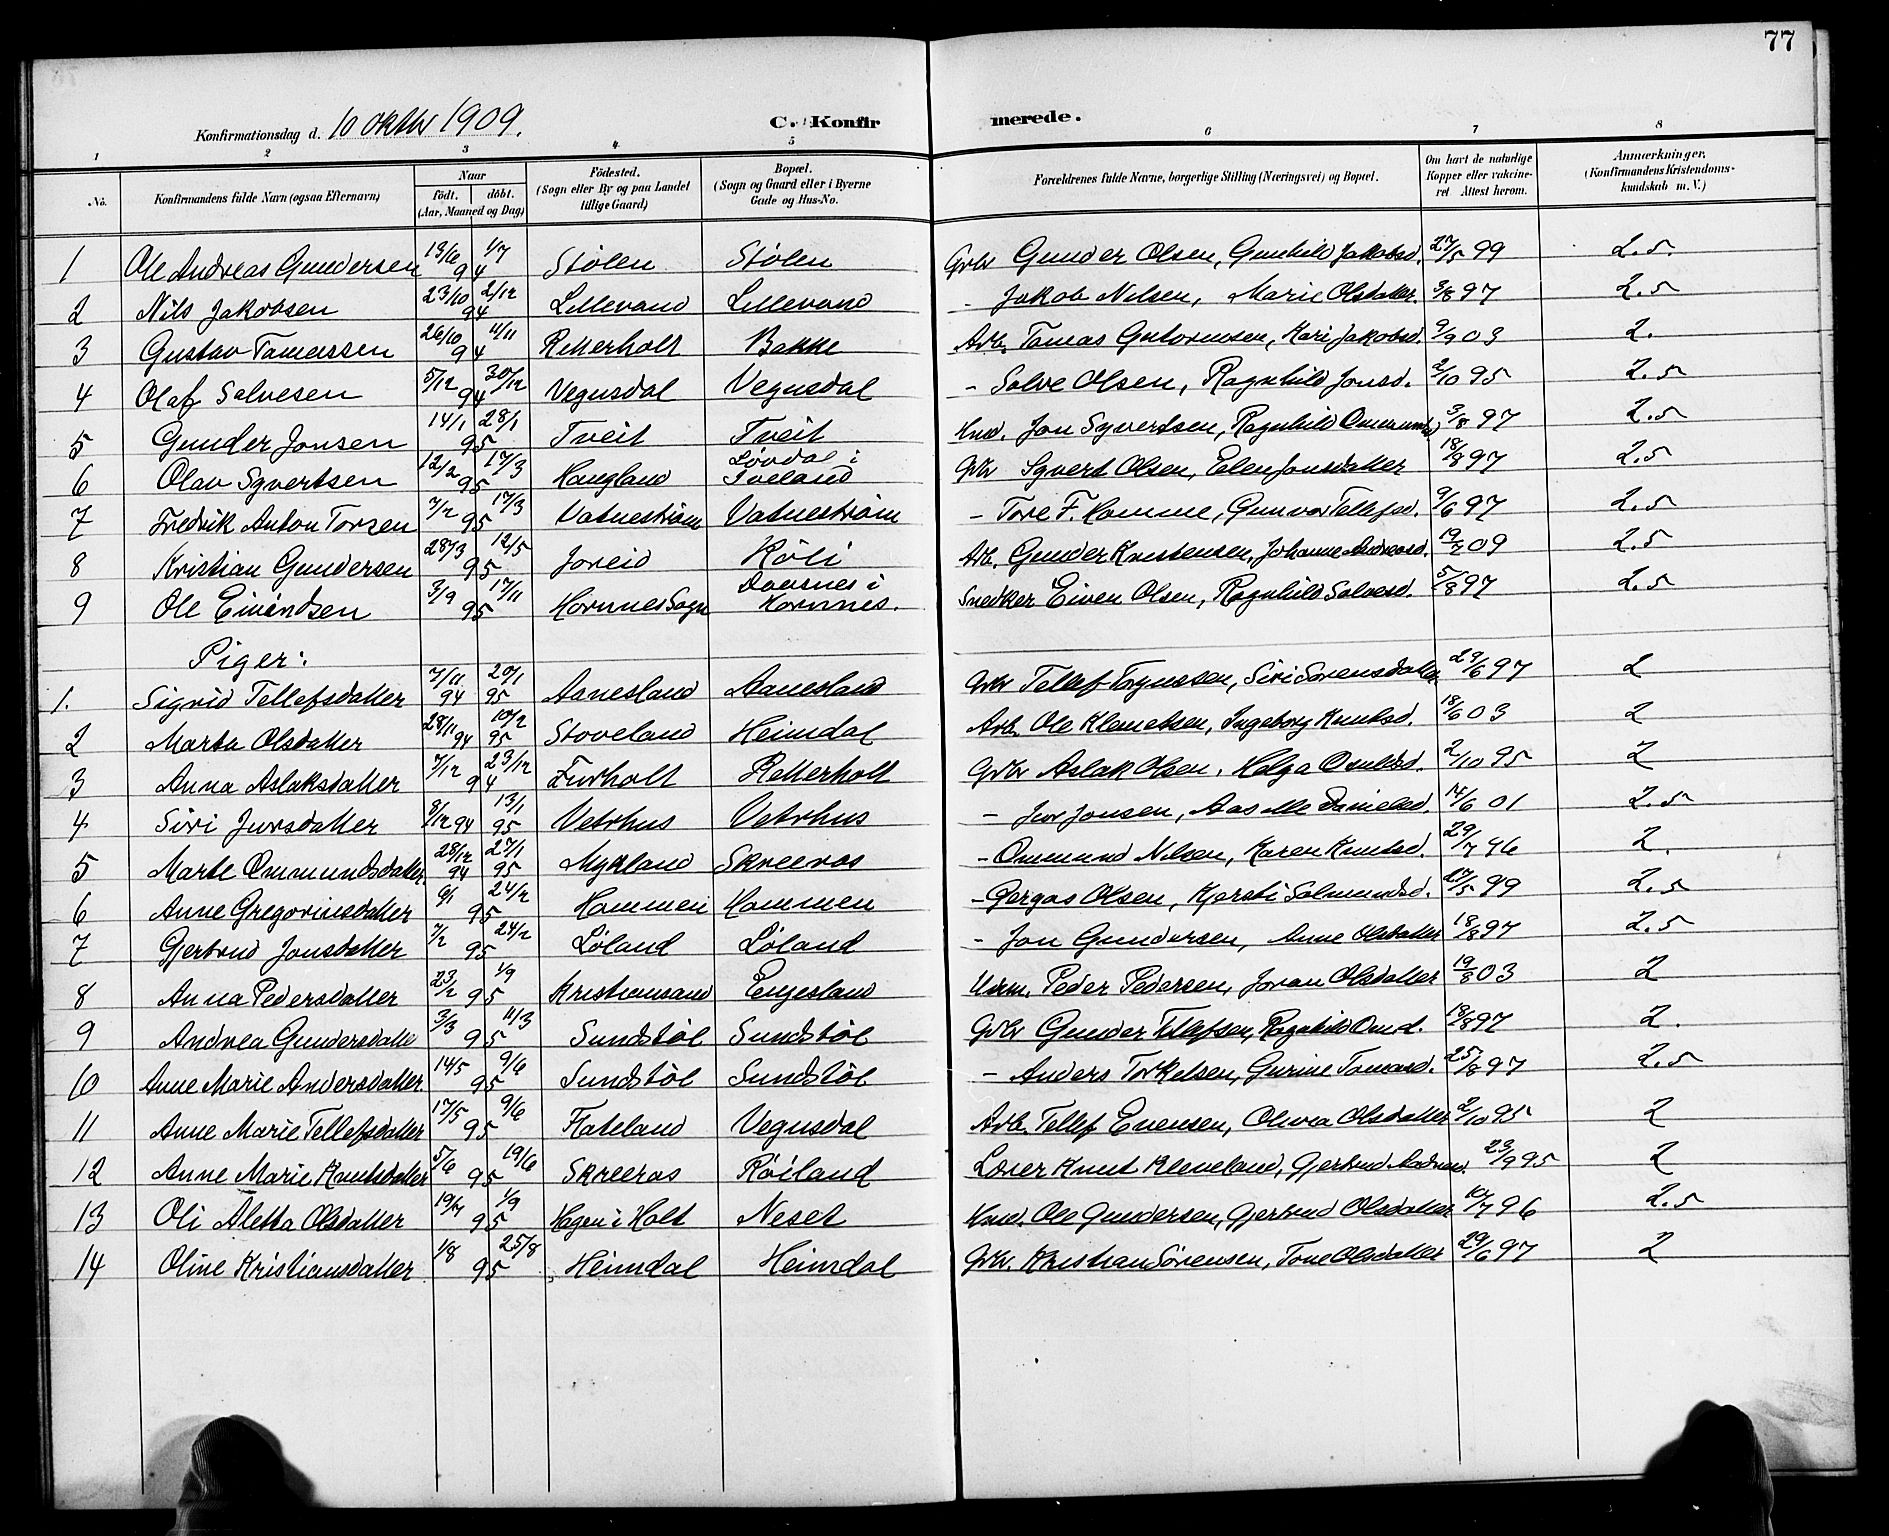 77
Konfirmationsdag d. 10 oktbr 1909. C. Konfirmerede.
1 2 3 4 5 6 7 8
No. Konfirmandens fulde Navn (ogsaa Efternavn) Naar födt. döbt. (Aar, Maaned og Dag) Födested. (Sogn eller By og paa Landet tillige Gaard) Bopæl. (Sogn og Gaard eller i Byerne Gade og Hus-No. Forældrenes fulde Navne, borgerlige Stilling (Næringsvei) og Bopæl. Om havt de naturlige Kopper eller vaccineret. Attest herom. Anmærkninger. (Konfirmandens Kristendomskundskab m. V.)
1 Ole Andreas Gundersen 13/6 1/7 94 Stølen Stølen Gbr Gunder Olsen, Gunhild Jakobsd. 27/5 99 2.5
2 Nils Jakobsen 23/10 2/12 94 Lillevand Lillevand - Jakob Nilsen, Marie Olsdatter 3/8 97 2.5
3 Gustav Tomassen 26/10 11/11 94 Retterholt Bakke Arb. Tomas Gutormsen, Kari Jakobsd. 9/9 03 2.
4 Olaf Salvesen 5/12 30/12 94 Vegusdal Vegusdal - Salve Olsen, Ragnhild Jonsd. 2/10 95 2.5
5 Gunder Jonsen 14/1 28/1 95 Tveit Tveit Hmd. Jon Syvertsen, Ragnhild 3/8 97 2.5
6 Olav Syvertsen 12/2 17/3 95 Haugland Løvdal i Iveland Gbr Syvert Olsen, Ellen Jonsdatter 18/8 97 2.5
7 Fredrik Anton Torsen 7/2 17/3 95 Vatnestrøm Vatnestrøm - Tore F. Homme, Gunvor Tellefsd. 9/6 97 2.5
8 Kristian Gundersen 28/3 12/5 95 Joreid Røli Arb. Gunder Kristensen, Johanne Andreasd. 19/7 09 2.5
9 Ole Eivindsen 3/9 17/11 95 Hornnes Sogn Daasnes i Hornnes. Snedker Eiven Olsen, Ragnhild Salvesd. 5/8 97 2.5
Piger:
1. Sigrid Tellefsdatter 7/11 94 20/1 95 Aanesland Aanesland Gbr Tellef Torjussen, Siri Sørensdatter 29/6 97 2
2 Marta Olsdatter 28/11 94 10/2 95 Stoveland Heimdal Arb. Ole Klemetsen, Ingeborg Knutsd. 18/6 03 2
3 Anna Aslaksdatter 7/12 23/12 94 Furholt Retterholt Gbr Aslak Olsen, Helga 2/10 95 2
4 Siri Jursdatter 8/12 94 13/1 95 Vetrhus Vetrhus - Jur Jonsen, Aasille Danielsd. 14/6 01 2.5
5 Marte Ommundsdatter 28/12 94 27/1 95 Mykland Skreeros - Ommund Nilsen, Karen Knutsd. 29/7 96 2.
6 Anne Gregoriusdatter 9/1 24/2 95 Hommen Hommen - Gergas Olsen, Kjersti Salmundsd. 27/5 99 2.5
7 Gjertrud Jonsdatter 7/2 24/2 95 Løland Løland - Jon Gundersen, Anne Olsdatter 18/8 97 2.5
8 Anna Pedersdatter 23/2 1/9 95 Kristiansand Engesland Peder Pedersen, Joran Olsdatter 19/8 03 2
9 Andrea Gundersdatter 3/3 11/3 95 Sundstøl Sundstøl Gbr Gunder Tellefsen, Ragnhild 19/8 97 2.
10 Anne Marie Andersdatter 14/5 9/6 95 Sundstøl Sundstøl - Anders Torkelsen, Gurine Tomasd. 25/8 97 2.5
11 Anne Marie Tellefsdatter 17/5 9/6 95 Flateland Vegusdal Arb. Tellef Evensen, Olivea Olsdatter 2/10 95 2
12 Anne Marie Knutsdatter 5/6 19/6 95 Skreeros Røiland Lærer Knut Kleveland, Gjertrud 23/9 95 2
13 Oli Aletta Olsdatter 1/9 95 Hagen i Holt Neset Hmd. Ole Gundersen, Gjertrud Olsdatter 10/7 96 2.5
14 Oline Kristiansdatter 1/8 25/8 95 Heimdal Heimdal Gbr. Kristian Sørensen, Tone Olsdatter 29/6 97 2